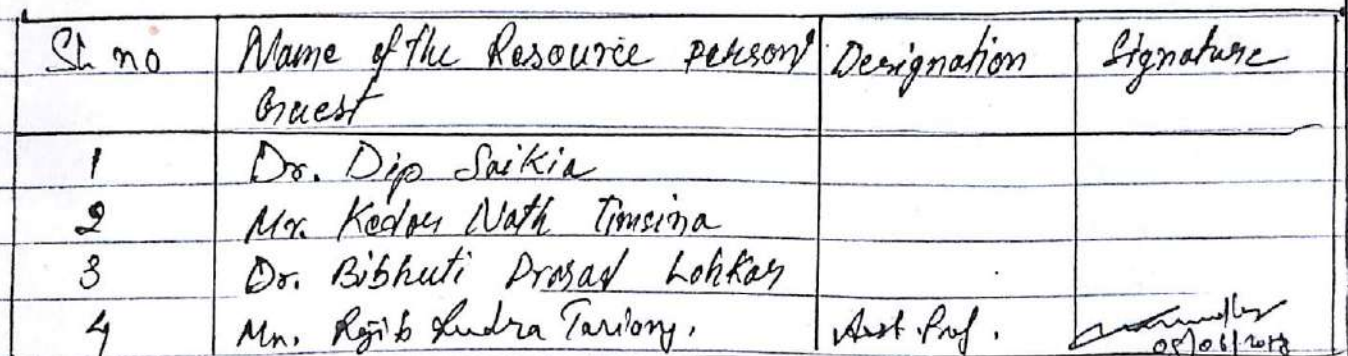 Sl. no Name of the Resource person/ Designation Signature
Guest
1 Dr. Dip Saikia
2 Mr. Kedar Nath Timsina
3 Dr. Bibhuti Prasad Lohkar
4 Mr. Rajib Rudra Tariang. Asst. Prof.
05/06/2018